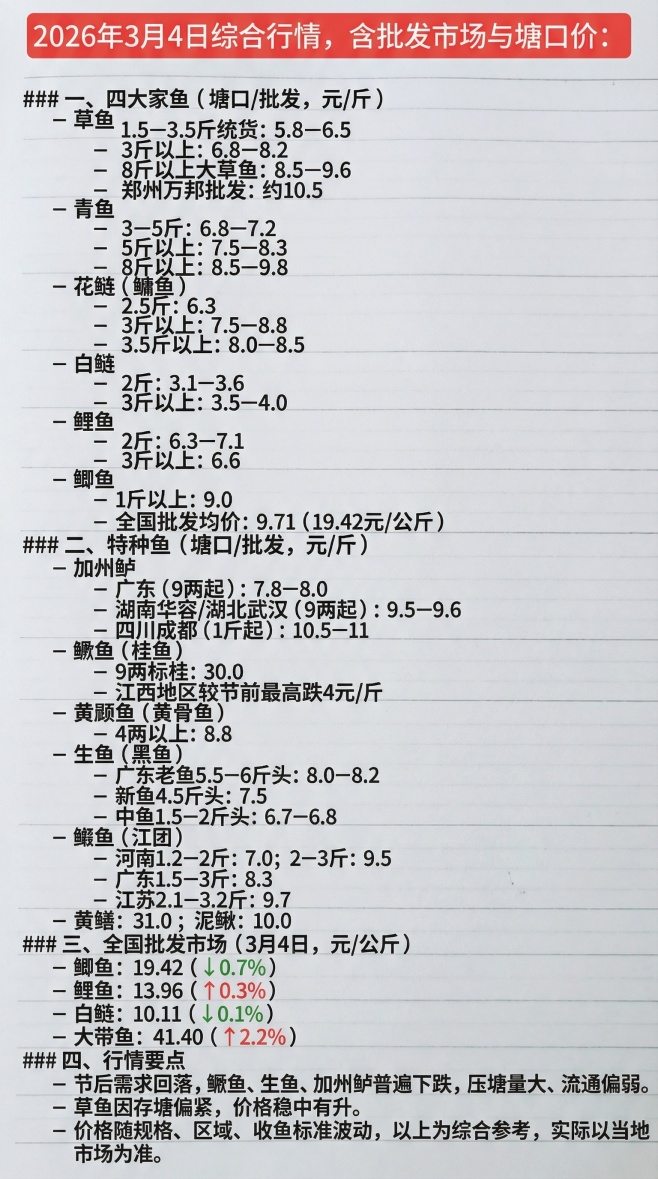 2026年3月4日综合行情，含批发市场与塘口价：
### 一、四大家鱼（塘口/批发，元/斤）
– 草鱼
– 1.5—3.5斤统货：5.8—6.5
– 3斤以上：6.8—8.2
– 8斤以上大草鱼：8.5—9.6
– 郑州万邦批发：约10.5
– 青鱼
– 3—5斤：6.8—7.2
– 5斤以上：7.5—8.3
– 8斤以上：8.5—9.8
– 花鲢（鳙鱼）
– 2.5斤：6.3
– 3斤以上：7.5—8.8
– 3.5斤以上：8.0—8.5
– 白鲢
– 2斤：3.1—3.6
– 3斤以上：3.5—4.0
– 鲤鱼
– 2斤：6.3—7.1
– 3斤以上：6.6
– 鲫鱼
– 1斤以上：9.0
– 全国批发均价：9.71（19.42元/公斤）
### 二、特种鱼（塘口/批发，元/斤）
– 加州鲈
– 广东（9两起）：7.8—8.0
– 湖南华容/湖北武汉（9两起）：9.5—9.6
– 四川成都（1斤起）：10.5—11
– 鳜鱼（桂鱼）
– 9两标桂：30.0
– 江西地区较节前最高跌4元/斤
– 黄顾鱼（黄骨鱼）
– 4两以上：8.8
– 生鱼（黑鱼）
– 广东老鱼5.5—6斤头：8.0—8.2
– 新鱼4.5斤头：7.5
– 中鱼1.5—2斤头：6.7—6.8
– 鲴鱼（江团）
– 河南1.2—2斤：7.0；2—3斤：9.5
– 广东1.5—3斤：8.3
– 江苏2.1—3.2斤：9.7
– 黄鳝：31.0；泥鳅：10.0
### 三、全国批发市场（3月4日，元/公斤）
– 鲫鱼：19.42（↓0.7%）
– 鲤鱼：13.96（↑0.3%）
– 白鲢：10.11（↓0.1%）
– 大带鱼：41.40（↑2.2%）
### 四、行情要点
– 节后需求回落，鳜鱼、生鱼、加州鲈普遍下跌，压塘量大、流通偏弱。
– 草鱼因存塘偏紧，价格稳中有升。
– 价格随规格、区域、收鱼标准波动，以上为综合参考，实际以当地
市场为准。